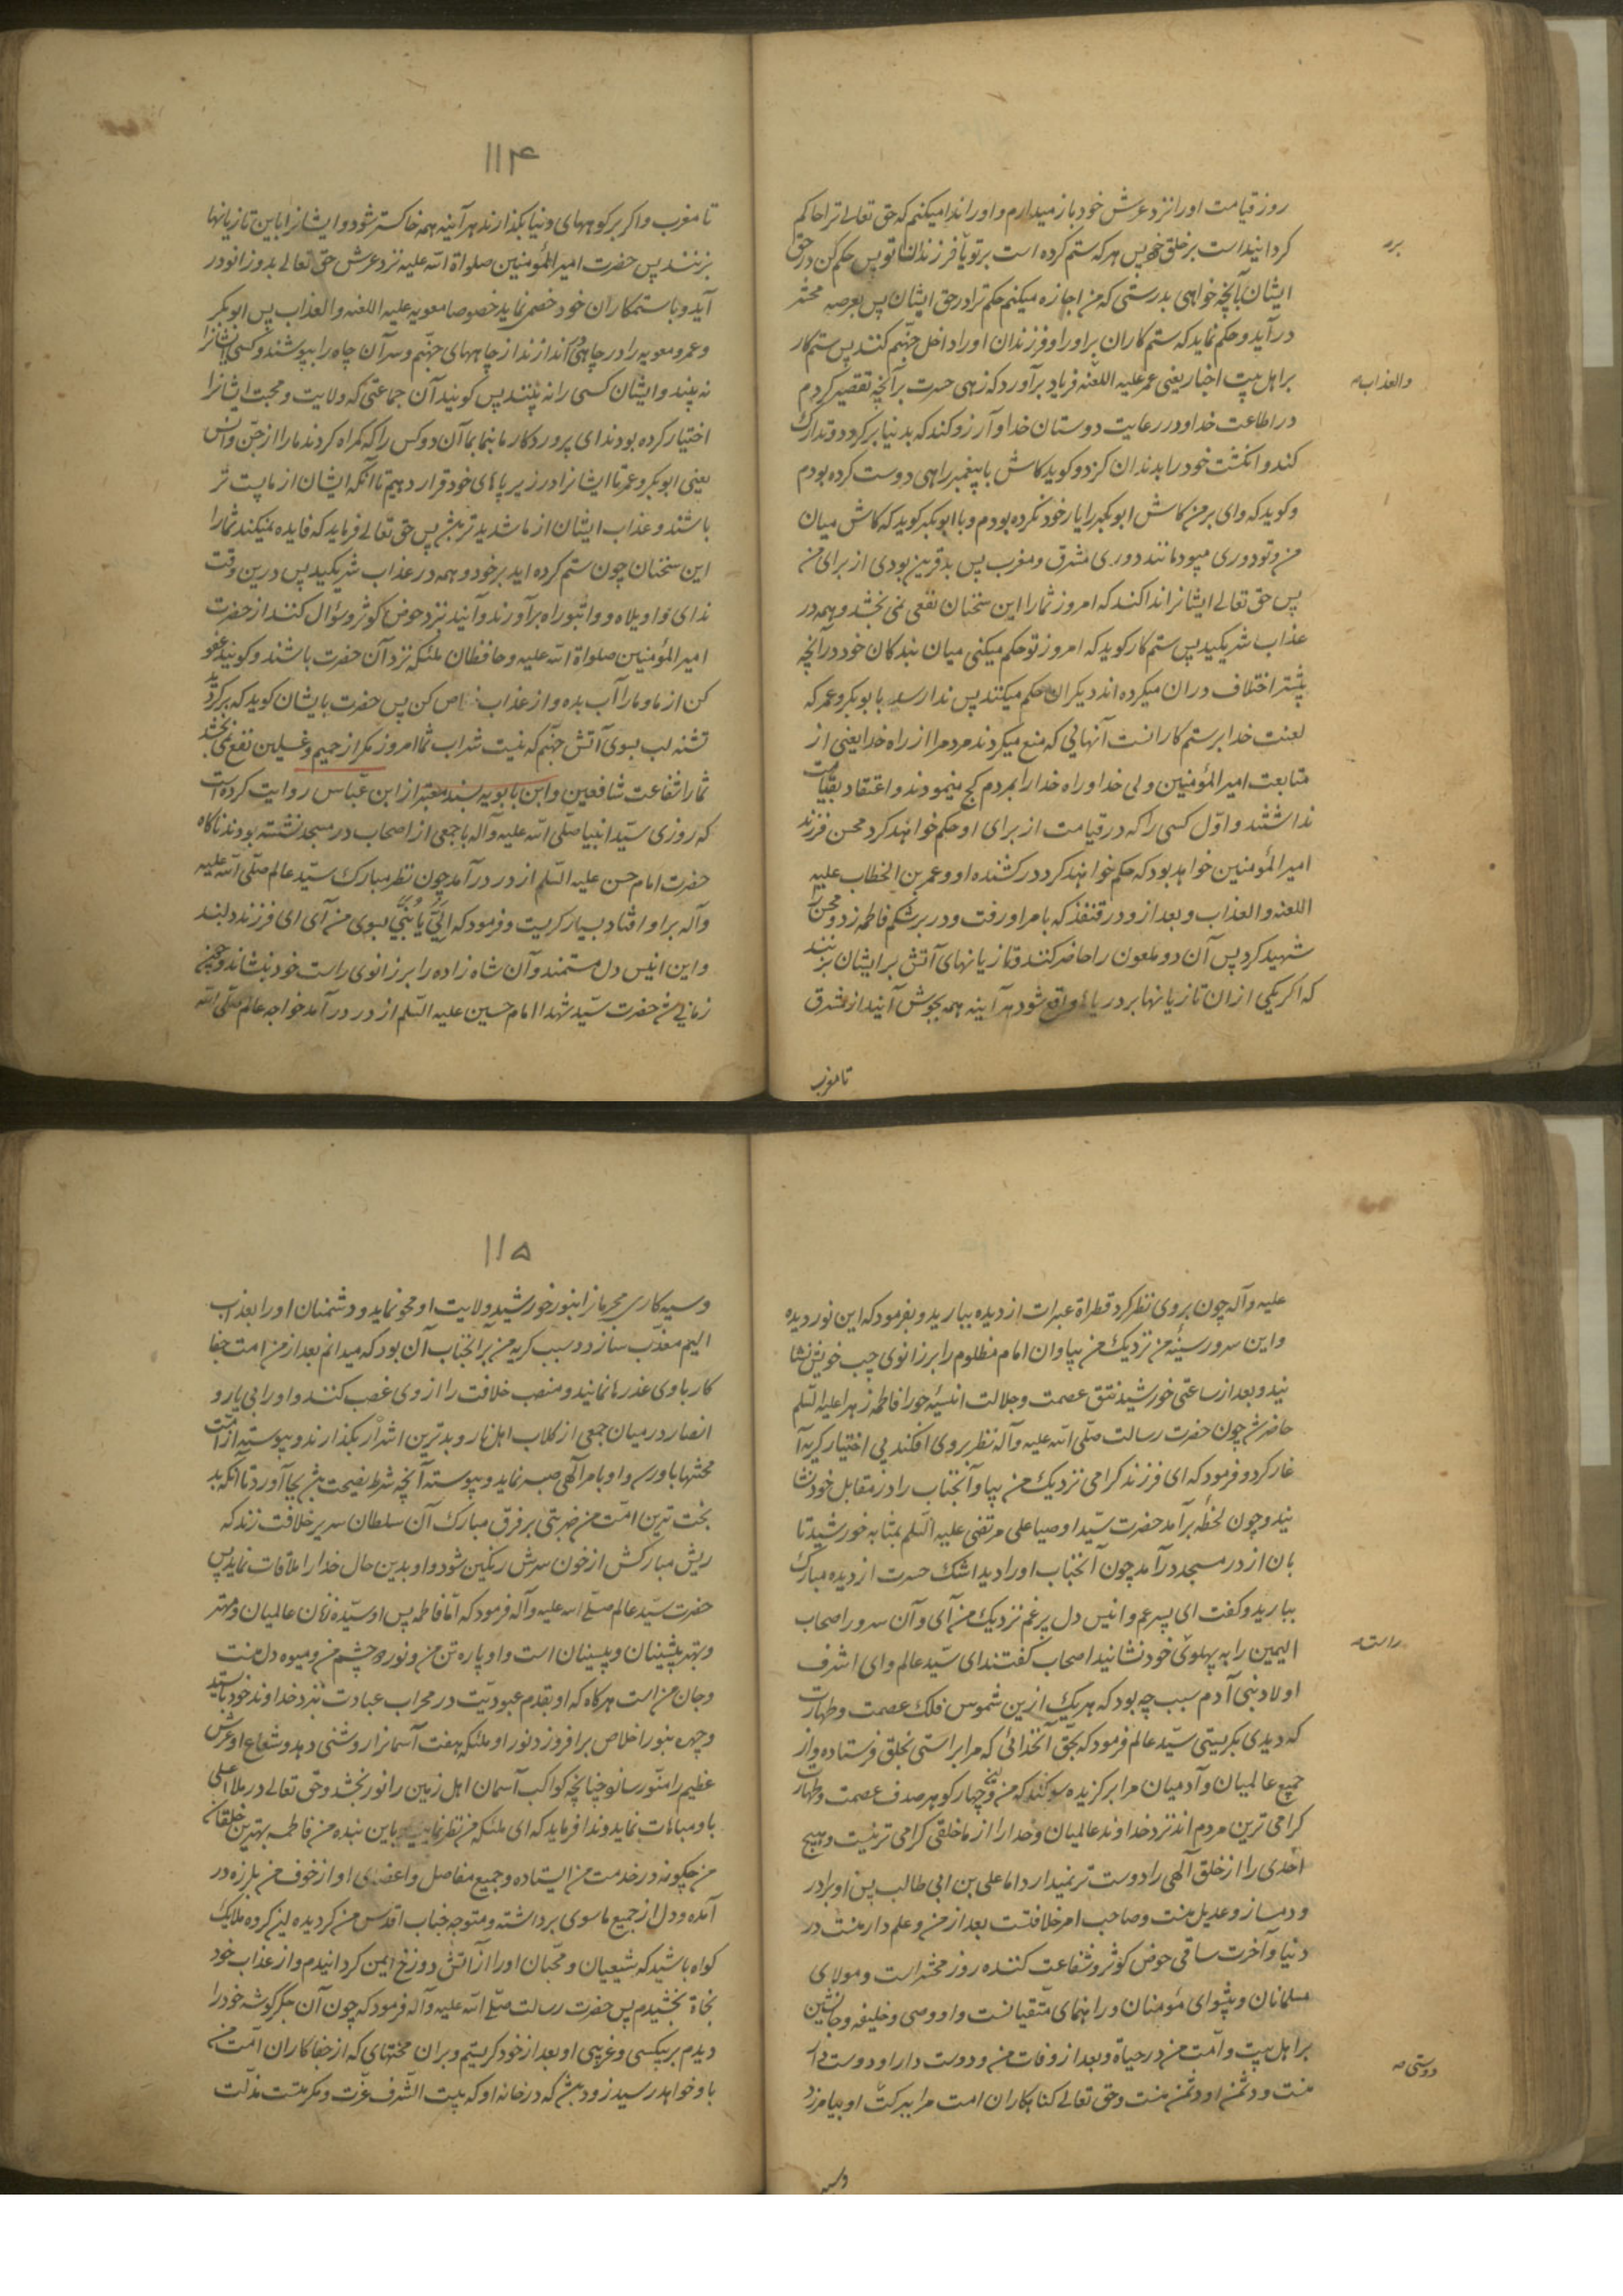 روز قیامت اورا نزد عرش خود باز میدارم و اورا ندا میکنم که حق تعالی ترا حاکم
گردانیده است بر خلق خود پس هر که ستم کرده است بر تو یا فرزندان تو پس حکم کن در حق
برر
ایشان بآنچه خواهی بدرستی که من اجازه میکنم حکم ترا در حق ایشان پس بعرصه محشر
در آید و حکم نماید که ستم کاران بر او را و فرزندان او را داخل جهنم کنند پس ستم کار
بر اهل بیت اخبار یعنی عمر علیه اللعنه فریاد برآورد که زهی حسرت بر آنچه تقصیر کردم
والعذاب
در اطاعت خدا و در رعایت دوستان خدا و آرزو کند که بدنیا برگردد و تدارک
کند و انگشت خود را بدندان گزد و گوید کاش با پیغمبر راهی دوست کرده بودم
و گوید که وای بر من کاش ابوبکر را یار خود نکرده بودم و با ابوبکر گوید که کاش میان
من و تو دوری میبود مانند دوری مشرق و مغرب پس بد قرین بودی از برای من
پس حق تعالی ایشانرا ندا کند که امروز شما را این سخنان نفعی نمی بخشد و همه در
عذاب شریکید پس ستم کار گوید که امروز تو حکم میکنی میان بندگان خود در آنچه
پیشتر اختلاف در ان میکرده اند دیگران حکم میکنند پس ندا رسد بابوبکر و عمر که
لعنت خدا بر ستم کارانست آنهایی که منع میکردند مردمرا از راه خدا یعنی از
متابعت امیر المؤمنین ولی خدا و راه خدا را بمردم کج مینمودند و اعتقاد بقیامت
نداشتند و اول کسی را که در قیامت از برای او حکم خواهند کرد محسن فرزند
امیر المؤمنین خواهد بود که حکم خواهند کرد در کشنده او و عمر بن الخطاب علیه
اللعنه و العذاب و بعد از و در قنفذ که بامر او رفت و در بر شکم فاطمه زد و محسن را
شهید کرد پس آن دو ملعون را حاضر کنند و تازیانهای آتش بر ایشان بزنند
که اگر یکی از ان تازیانها بر دریاها واقع شود هر آینه همه بجوش آیند از مشرق
تا مغرب
۱۱۴
تا مغرب و اگر بر کوههای دنیا بگذارند هر آینه همه خاکستر شود و ایشانرا باین تازیانها
بزنند پس حضرت امیر المؤمنین صلواة الله علیه نزد عرش حق تعالی بدو زانو در
آید و با ستمکاران خود خصمی نماید خصوصا معویه علیه اللعنه و العذاب پس ابوبکر
و عمر و معویه را در چاهی اندازند از چاههای جهنم و سر آن چاه را بپوشند و کسی ایشانرا
نه بیند و ایشان کسی را نه بینند پس گویند آن جماعتی که ولایت و محبت ایشانرا
اختیار کرده بودند ای پروردگار ما بنما بما آن دو کس را که گمراه کردند ما را از جن و انس
یعنی ابوبکر و عمر تا ایشانرا در زیر پاهای خود قرار دهیم تا آنکه ایشان از ما پست تر
باشند و عذاب ایشان از ما شدیدتر باشد پس حق تعالی فرماید که فایده نمیکند شما را
این سخنان چون ستم کرده اید بر خود و همه در عذاب شریکید پس درین وقت
ندای واویلاه و واثبوراه برآورند و آیند نزد حوض کوثر و سؤال کنند از حضرت
امیر المؤمنین صلواة الله علیه و حافظان ملئکه نزد آن حضرت باشند و گویند عفو
کن از ما و ما را آب بده و از عذاب خلاص کن پس حضرت بایشان گوید که برگردید
تشنه لب بسوی آتش جهنم که نیست شراب شما امروز مگر از حمیم و غسلین نفع نمی بخشد
شما را شفاعت شافعین و ابن بابویه بسند معتبر از ابن عباس روایت کرده است
که روزی سید انبیا صلی الله علیه و آله با جمعی از اصحاب در مسجد نشسته بودند ناگاه
حضرت امام حسن علیه السلم از در در آمد چون نظر مبارک سید عالم صلی الله علیه
و آله بر او افتاد بسیار گریست و فرمود که الی یا بنی بسوی من آی ای فرزند دلبند
و این انیس دل مستمند و آن شاه زاده را بر زانوی راست خود بنشاند و چون
زمانی شد حضرت سید شهدا امام حسین علیه السلم از در در آمد خواجه عالم صلی الله
علیه و آله چون بر وی نظر کرد قطراة عبرات از دیده ببارید و بفرمود که این نور دیده
و این سرور سینه من نزدیک من بیا و ان امام مظلوم را بر زانوی چپ خویش نشا
نید و بعد از ساعتی خورشید تتق عصمت و جلالت انسیه حورا فاطمه زهرا علیها السلم
حاضر شد چون حضرت رسالت صلی الله علیه و آله نظر بر وی افکند بی اختیار گریه آ
غاز کرد و فرمود که ای فرزند گرامی نزدیک من بیا و آنجناب را در مقابل خود نشا
نید و چون لحظه برآمد حضرت سید اوصیا علی مرتضی علیه السلم بمثابه خورشید تا
بان از در مسجد در آمد چون آنجناب او را دید اشک حسرت از دیده مبارک
ببارید و گفت ای پسر عم و انیس دل پر غم نزدیک من آی و آن سرور اصحاب
الیمین را به پهلوی خود نشانید اصحاب گفتند ای سید عالم و ای اشرف
راست
اولاد بنی آدم سبب چه بود که هر یک ازین شموس فلک عصمت و طهارت
که دیدی بگریستی سید عالم فرمود که بحق آنخدائی که مرا براستی بخلق فرستاده و از
جمیع عالمیان و آدمیان مرا برگزیده سوگند که من و این چهار گوهر صدف عصمت و طهارت
گرامی ترین مردم اند نزد خداوند عالمیان و خدا را از ما خلقی گرامی تر نیست و هیچ
احدی را از خلق الهی را دوست تر نمیدارد اما علی بن ابی طالب پس او برادر
و دمساز و عدیل منست و صاحب امر خلافتست بعد از من و علم دار منست در
دنیا و آخرت ساقی حوض کوثر و شفاعت کننده روز محشر است و مولای
مسلمانان و پیشوای مؤمنان و راهنمای متقیانست و او وصی و خلیفه و جانشین
بر اهل بیت و امت من در حیاة و بعد از وفات من و دوست دار او دوست دار
دوستی
منست و دشمن او دشمن منست و حق تعالی گناهکاران امت مرا ببرکت او بیامرزد
وسیه
۱۱۵
و سیه کاری مجرمانرا بنور خورشید ولایت او محو نماید و دشمنان او را بعذاب
الیم معذب سازد و سبب گریه من بر آنجناب آن بود که میدانم بعد از من امت جفا
کار با وی غدرها نمایند و منصب خلافت را از وی غصب کنند و او را بی یار و
انصار در میان جمعی از کلاب اهل نار و بدترین اشرار بگذارند و پیوسته از امت
محنتها باو رسد و او بامر الهی صبر نماید و پیوسته آنچه شرط نصیحت باشد بجا آورد تا آنکه بد
بخت ترین امت من ضربتی بر فرق مبارک آن سلطان سریر خلافت زند که
ریش مبارکش از خون سرش رنگین شود و او بدین حال خدا را ملاقات نماید پس
حضرت سید عالم صلی الله علیه و آله فرمود که اما فاطمه پس او سیده زنان عالمیان و مهتر
و بهتر پیشینان و پسینان است و او پاره تن من و نور چشم من و میوه دل منست
و جان من است هر گاه که او بقدم عبودیت در محراب عبادت نزد خداوند خود بایستد
و چهره بنور اخلاص برافروزد نور او ملئکه هفت آسمانرا روشنی دهد و شعاع او عرش
عظیم را منور سازد چنانچه کواکب آسمان اهل زمین را نور بخشد و حق تعالی در ملا اعلی
باو مباهات نماید و ندا فرماید که ای ملئکه من نظر نمایید باین بنده من فاطمه بهترین خلقان
من چگونه در خدمت من ایستاده و جمیع مفاصل و اعضای او از خوف من بلرزه در
آمده و دل از جمیع ماسوی برداشته و متوجه جناب اقدس من گردیده ای گروه ملایک
گواه باشید که شیعیان و محبان او را از آتش دوزخ ایمن گردانیدم و از عذاب خود
نجاة بخشیدم پس حضرت رسالت صلی الله علیه و آله فرمود که چون آن جگر گوشه خود را
دیدم بر بیکسی و غریبی او بعد از خود گریستم و بران محنتهای که از جفا کاران امت من
باو خواهد رسید زود باشد که در خانه او که بیت الشرف عزت و مکرمتست مذلت